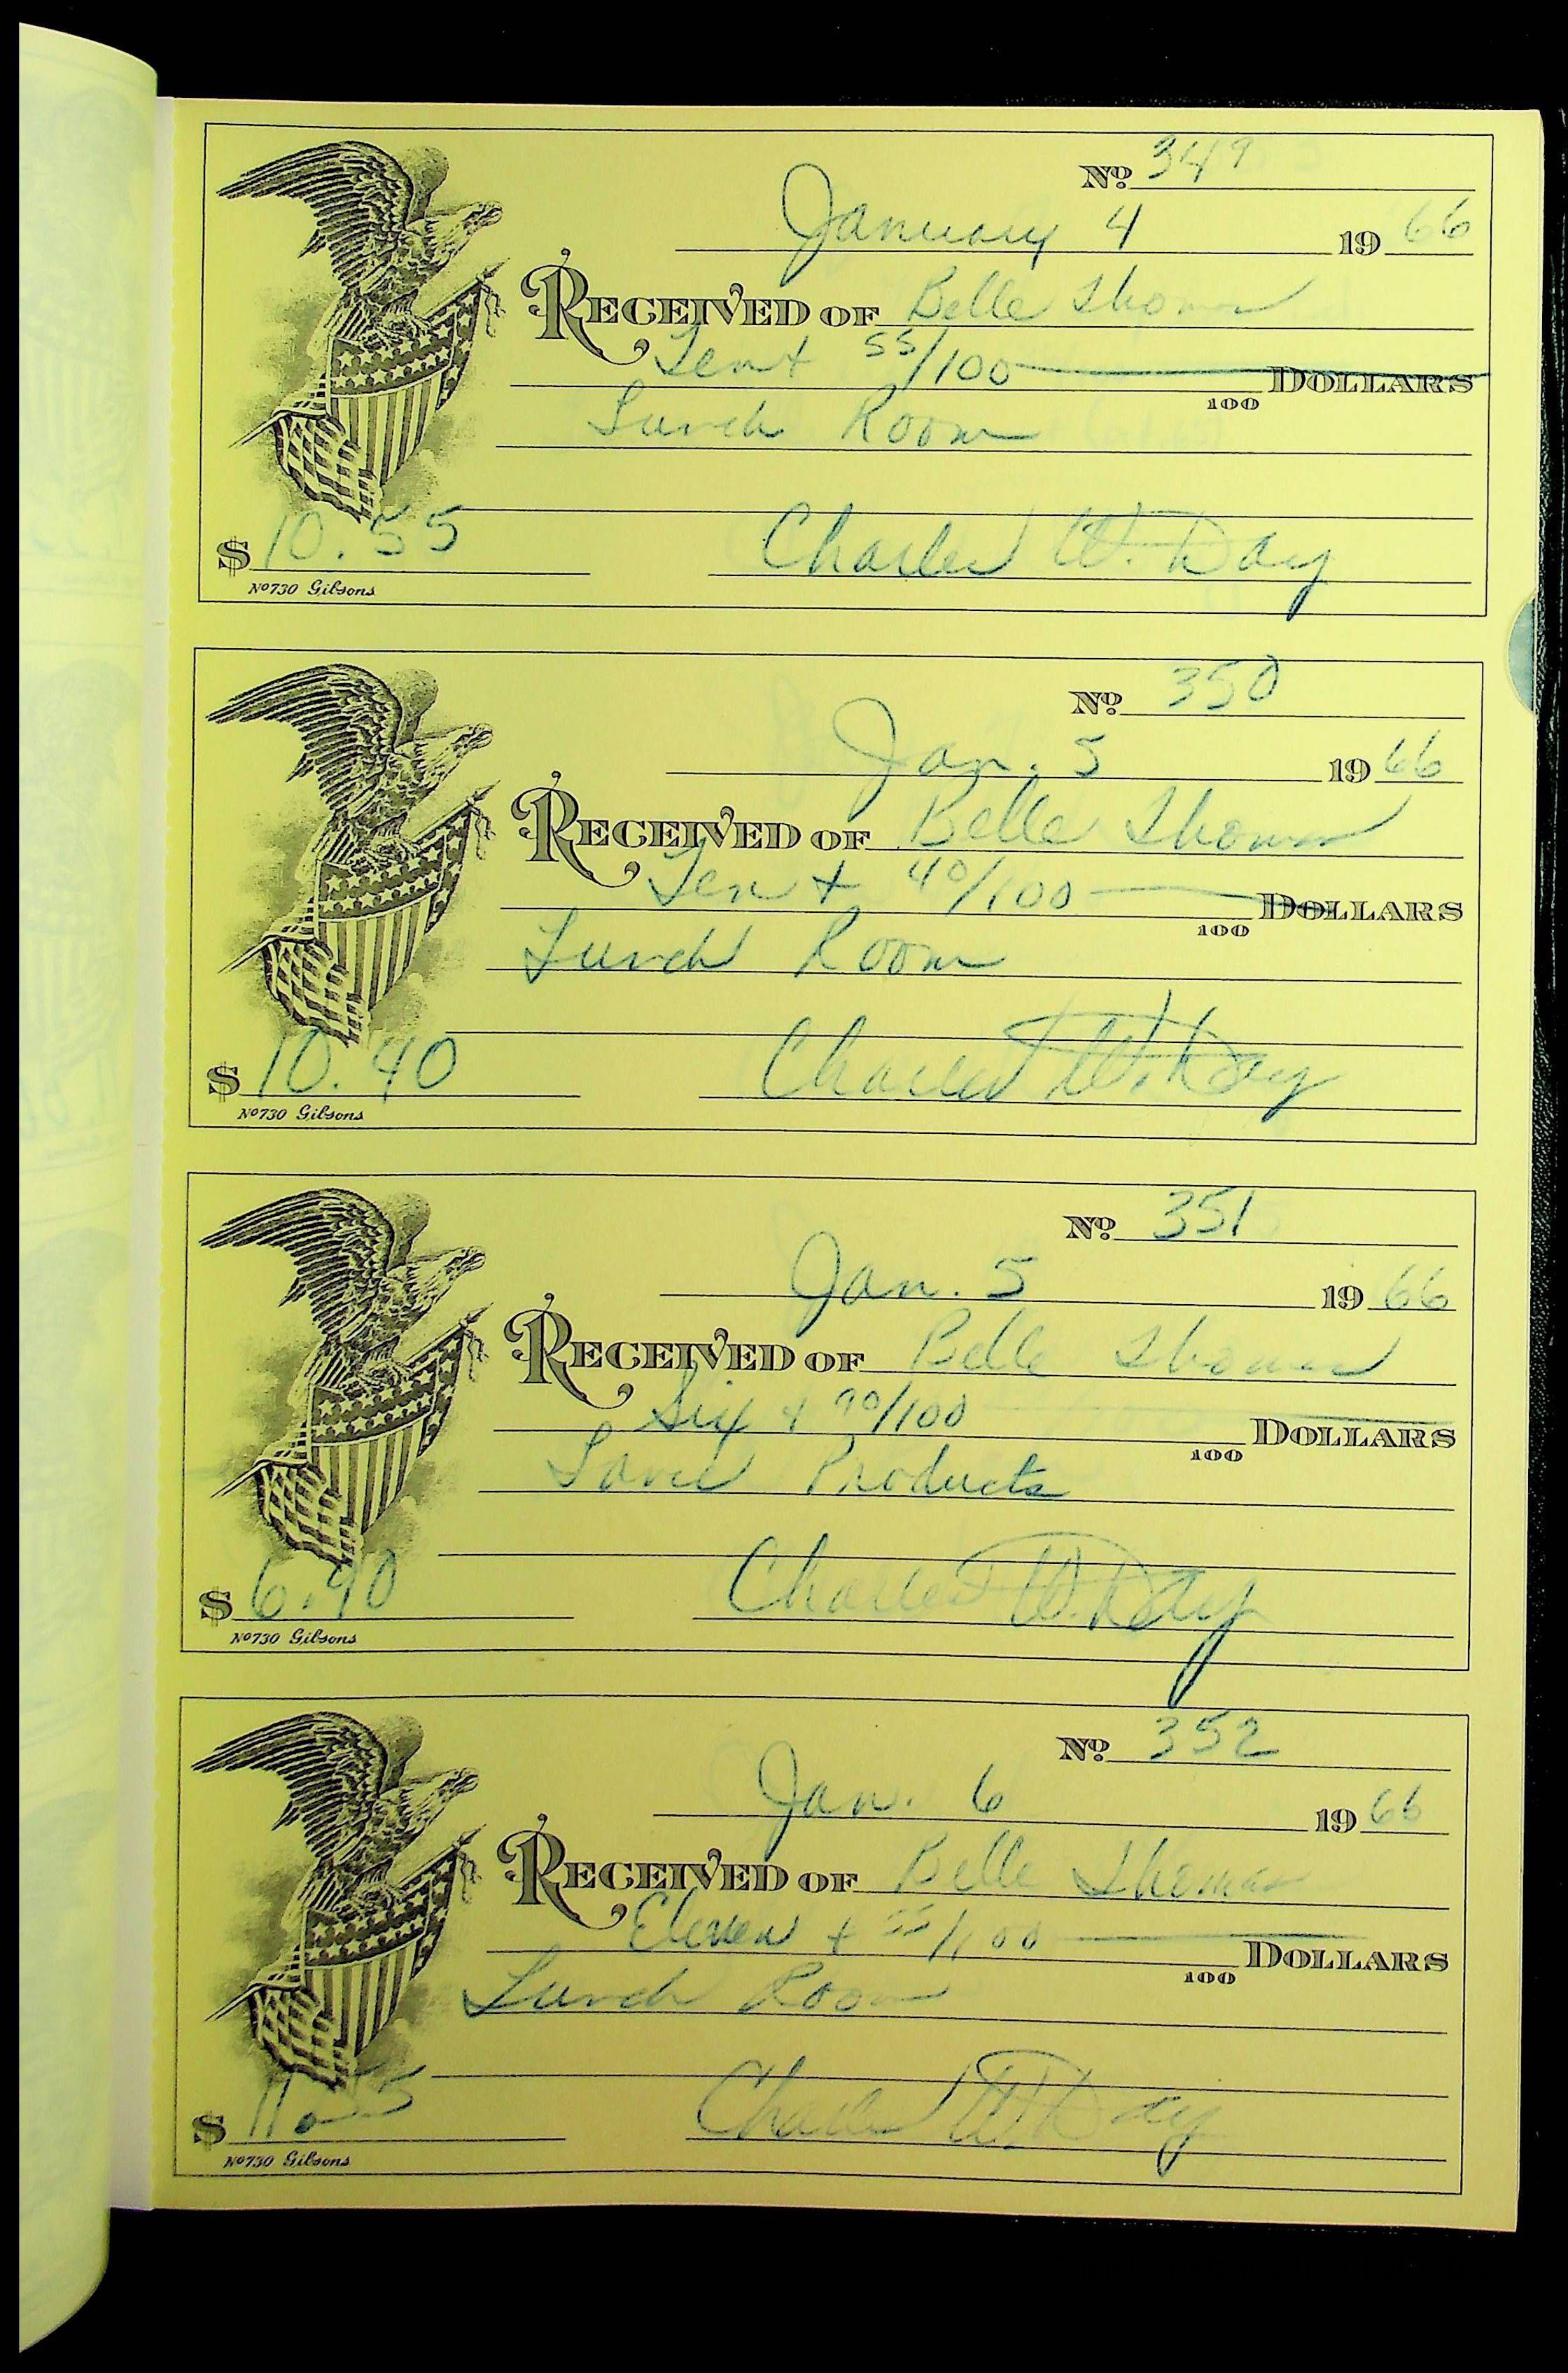 No. 349
January 4 1966
RECEIVED OF Belle Thomas
Ten + 55/100 DOLLARS
100
Lunch Room
$ 10.55 Charles W. Day
No 730 Gibsons
No. 350
Jan. 5 1966
RECEIVED OF Belle Thomas
Ten + 40/100 DOLLARS
100
Lunch Room
$ 10.40 Charles W. Day
No 730 Gibsons
No. 351
Jan. 5 1966
RECEIVED OF Belle Thomas
Six + 90/100 DOLLARS
100
Products
$ 6.90 Charles W. Day
No 730 Gibsons
No. 352
Jan. 6 1966
RECEIVED OF Belle Thomas
Eleven + 55/100 DOLLARS
100
Lunch Room
$ 11.55 Charles W. Day
No 730 Gibsons